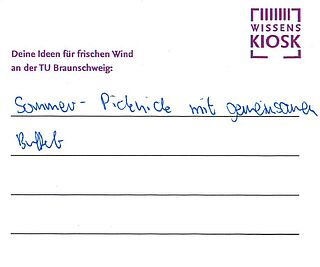 WISSENS
KIOSK
Deine Ideen für frischen Wind
an der TU Braunschweig:
Sommer- Picknick mit gemeinsamen
Buffet